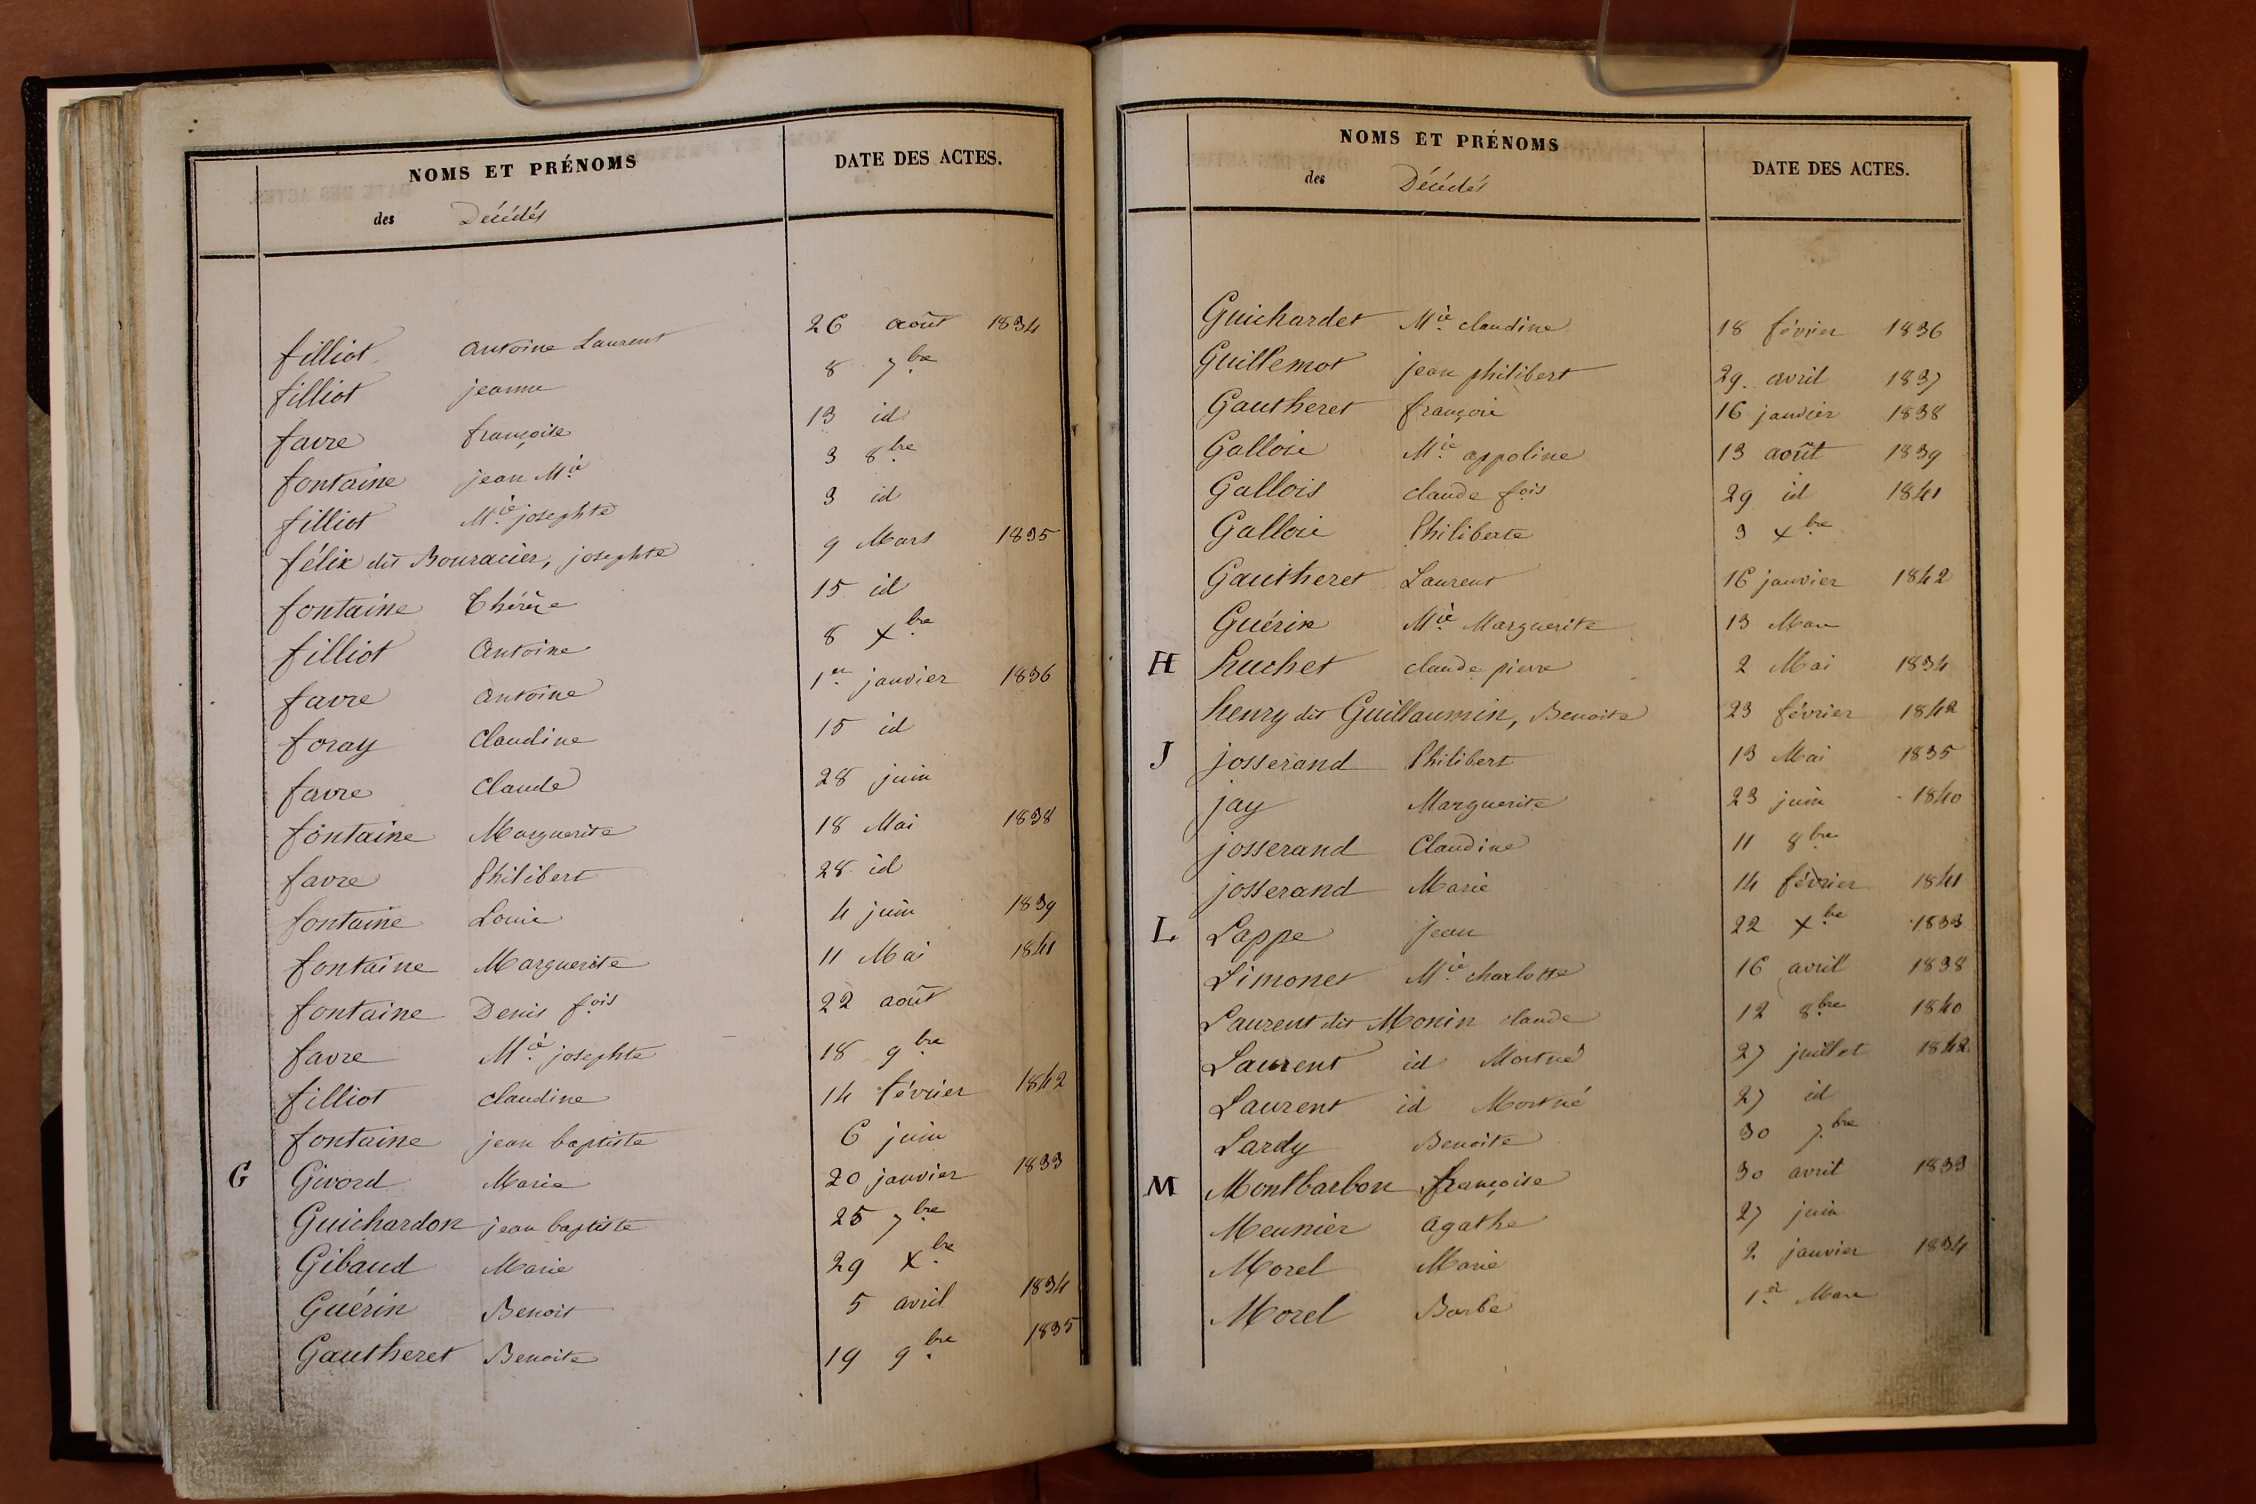 NOMS ET PRÉNOMS DATE DES ACTES.
des Décédés
filliot Antoine Laurent 26 août 1834
filliot jeanne 8 7bre
favre françoise 13 id
fontaine jean Mie 3 8bre
filliot Mie josephte 3 id
félix dit Bouracier, josephte 9 Mars 1835
fontaine Thérèze 15 id
filliot Antoine 8 Xbre
favre Antoine 1er janvier 1836
foray Claudine 15 id
favre Claude 28 juin
fontaine Marguerite 18 Mai 1838
favre Philibert 28 id
fontaine Louis 4 juin 1839
fontaine Marguerite 11 Mai 1841
fontaine Denis fois 22 août
favre Mie josephte 18 9bre
filliot claudine 14 février 1842
fontaine jean baptiste 6 juin
G Givord Marie 20 janvier 1833
Guichardon jean baptiste 25 7bre
Gibaud Marie 29 Xbre
Guérin Benoit 5 avril 1834
Gautheret Benoite 19 9bre 1835
NOMS ET PRÉNOMS DATE DES ACTES.
des Décédés
Guichardet Mie claudine 18 février 1836
Guillemot jean philibert 29 avril 1837
Gautheret françois 16 janvier 1838
Gallois Mie appoline 13 août 1839
Gallois claude fois 29 id 1841
Gallois Philiberte 3 Xbre
Gautheret Laurent 16 janvier 1842
Guérin Mie Marguerite 13 Mars
H huchet claude pierre 2 Mai 1834
henry dit Guillaumin, Benoite 23 février 1842
J josserand Philibert 13 Mai 1835
jay Marguerite 23 juin 1840
josserand Claudine 11 8bre
josserand Marie 14 février 1841
L Lappe Jean 22 Xbre 1833
Limonet Mie charlotte 16 avril 1838
Laurent dit Monin claude 12 8bre 1840
Laurent id Mortné 27 juillet 1842
Laurent id Mortné 27 id
Lardy Benoite 30 7bre
M Montbarbon françoise 30 avril 1833
Meunier agathe 27 juin
Morel Marie 2 janvier 1834
Morel Barbe 1er Mars